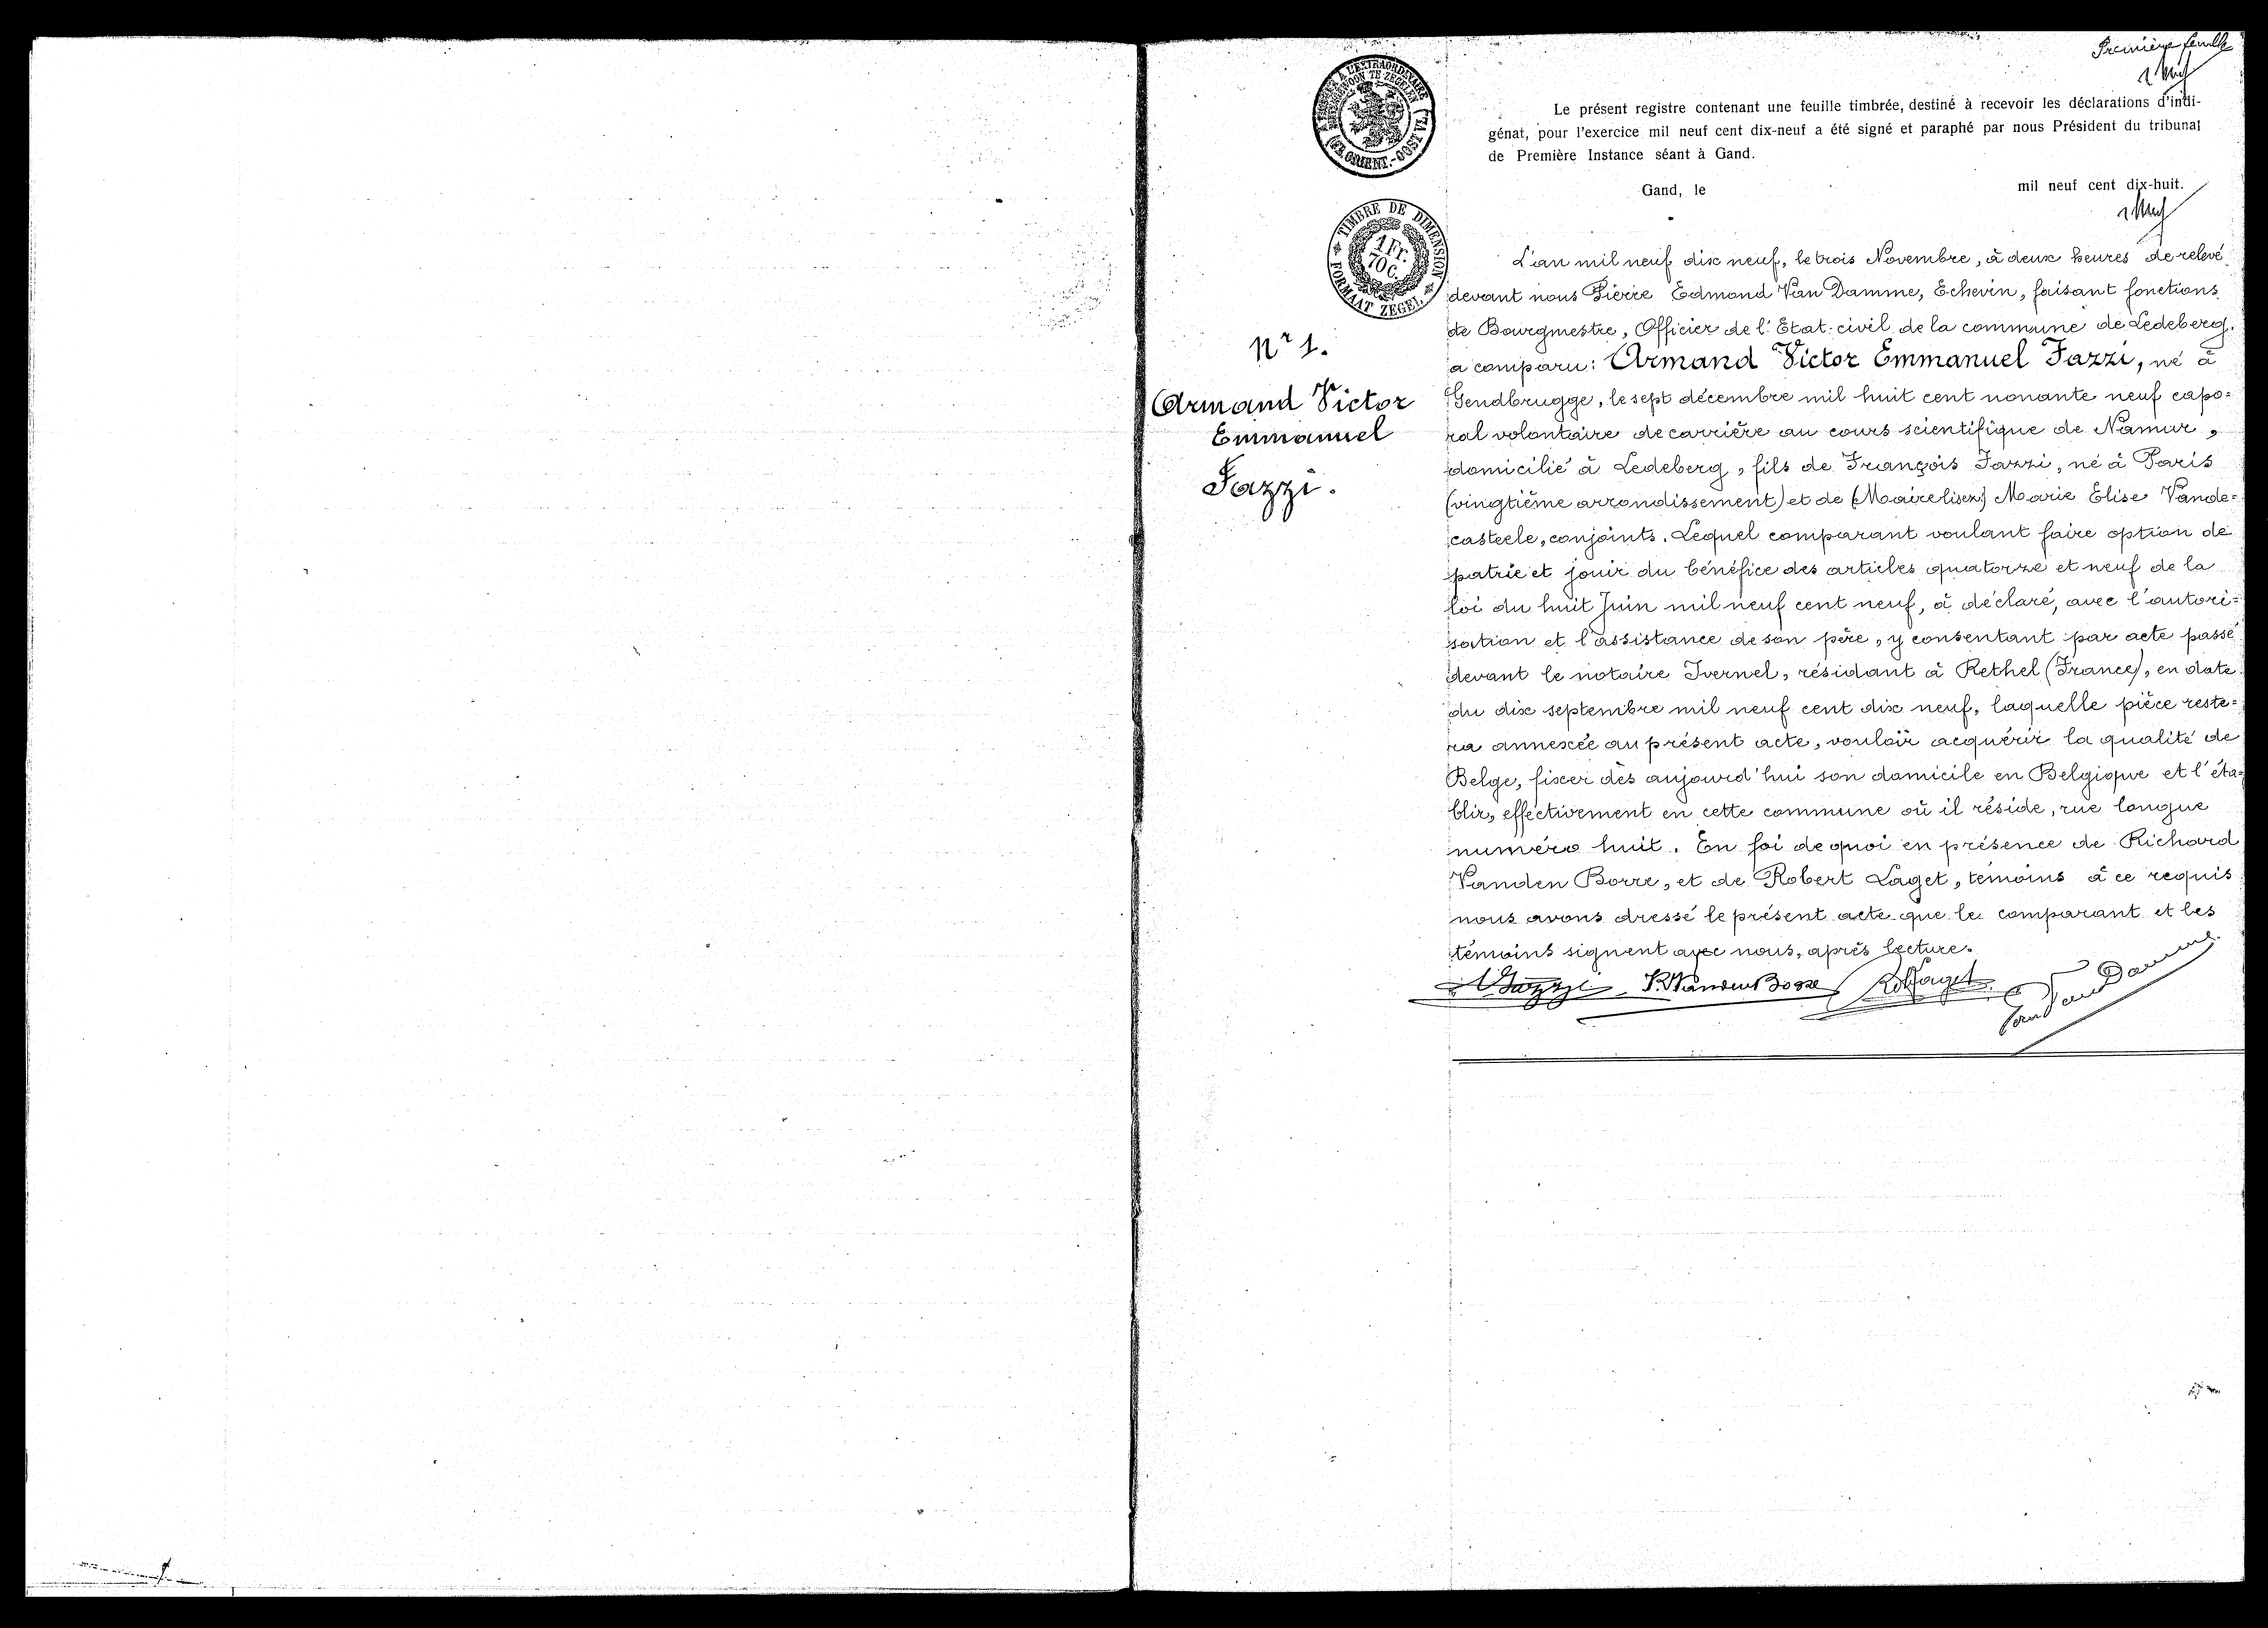 Première feuille
Le présent registre contenant une feuille timbrée, destiné à recevoir les déclarations d'indi-
génat, pour l'exercice mil neuf cent dix-neuf a été signé et paraphé par nous Président du tribunal
de Première Instance séant à Gand.
Gand, le mil neuf cent dix-huit.
TIMBRE DE DIMENSION
1 Fr.
70 C.
FORMAAT ZEGEL
Nr 1.
Armand Victor
Emmanuel
Fazzi.
L'an mil neuf dix neuf, le trois Novembre, à deux heures de relevé
devant nous Pierre Edmond Van Damme, Echevin, faisant fonctions
de Bourgmestre, Officier de l'Etat-civil de la commune de Ledeberg.
a comparu: Armand Victor Emmanuel Fazzi, né à
Gendbrugge, le sept décembre mil huit cent nonante neuf capo=
ral volontaire de carrière au cours scientifique de Namur,
domicilié à Ledeberg, fils de François Fazzi, né à Paris
(vingtième arrondissement) et de (Maire lisez) Marie Elise Vande=
casteele, conjoints. Lequel comparant voulant faire option de
patrie et jouir du bénéfice des articles quatorze et neuf de la
loi du huit Juin mil neuf cent neuf, a déclaré, avec l'autori=
sation et l'assistance de son père, y consentant par acte passé
devant le notaire Ivernel, résidant à Rethel (France), en date
du dix septembre mil neuf cent dix neuf, laquelle pièce reste=
ra annexée au présent acte, vouloir acquérir la qualité de
Belge, fixer dès aujourd'hui son domicile en Belgique et l'éta=
blir, effectivement en cette commune où il réside, rue longue
numéro huit. En foi de quoi en présence de Richard
Vanden Borre, et de Robert Laget, témoins à ce requis
nous avons dressé le présent acte que le comparant et les
témoins signent avec nous, après lecture.
A Fazzi R. Vanden Borre Rob Laget Van Damme